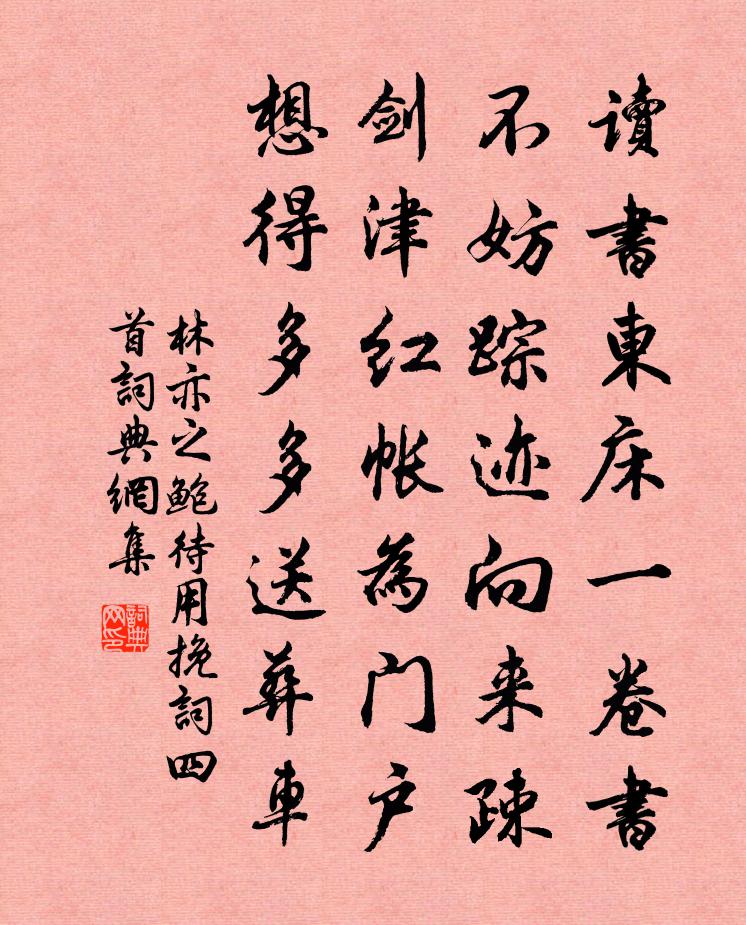 讀書東床一卷書
不妨踪迹向来疎
剑津红帐為门户
想得多多送葬車
林亦之鲍待用挽詞四
首詞典網集
詞典网印